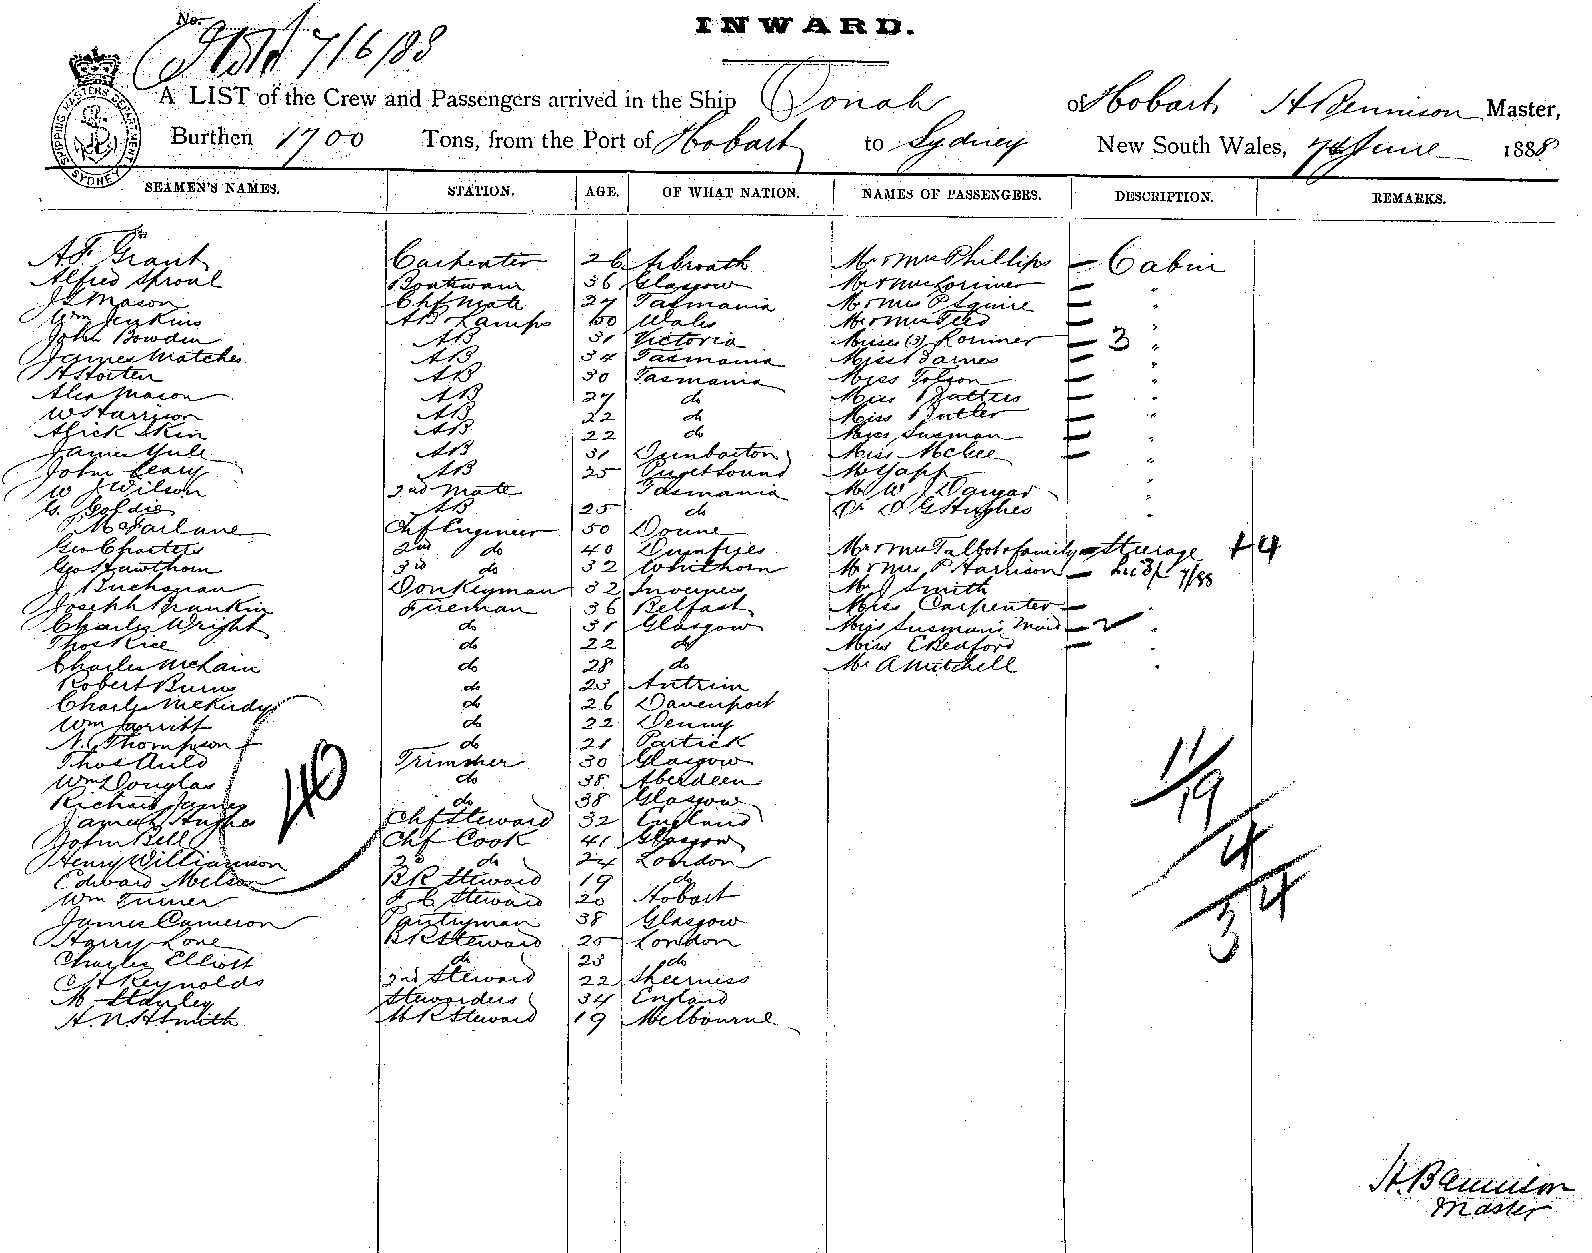 INWARD.
No.
7/6/88
A LIST of the Crew and Passengers arrived in the Ship Oonah of Hobart, H Bennison Master,
Burthen 1700 Tons, from the Port of Hobart to Sydney New South Wales, 7th June 1888
SHIPPING MASTERS DEPARTMENT SYDNEY
SEAMEN'S NAMES. STATION. AGE. OF WHAT NATION. NAMES OF PASSENGERS. DESCRIPTION. REMARKS.
A F Grant Carpenter 26 Arbroath Mr & Mrs Phillips — Cabin
Alfred Sproul Boatswain 36 Glasgow Mr & Mrs Lorimer — "
J S Mason Chf Mate 27 Tasmania Mr & Mrs P Squire — "
Wm Jenkins AB & Lamps 60 Wales Mr & Mrs Teed — "
John Bowden AB 31 Victoria Misses (3) Lorimer — 3 "
James Matches AB 34 Tasmania Miss Barnes — "
H Horten AB 30 Tasmania Miss Tolson — "
Alex Mason AB 27 do Miss Batters — "
W Harrison AB 22 do Miss Butler — "
Alick Skin AB 22 do Miss Susman — "
James Yule AB 31 Dunbarton Miss McGee — "
John Leary AB 25 Puget Sound Mr Yapp "
W J Wilson 2nd Mate Tasmania Mr W J Dangar "
G. Goldie AB 25 do Dr D G Hughes "
P McFarlane Chf Engineer 50 Doune
Geo Charters 2nd do 40 Dumfries Mr & Mrs Talbot & family — Steerage + 4
Geo Hawthorn 3rd do 32 Whithorn Mr & Mrs P Harrison — 7/88
J Buchanan Donkeyman 32 Inverness Mr J Smith
Joseph Rankin Fireman 36 Belfast Miss Carpenter — "
Charles Wright do 31 Glasgow Miss Susman's Maid — "
Thos Rice do 22 do Miss C Bedford — "
Charles McLain do 28 do Mr A Mitchell "
Robert Burns do 23 Antrim
Charles McKirdy do 26 Davenport
Wm do 22 Denny
N. Thompson do 21 Partick
Thos Auld Trimmer 30 Glasgow
Wm Douglas do 38 Aberdeen
Richard James do 38 Glasgow
James Hughes Chf Steward 32 England
John Bell Chf Cook 41 Glasgow
Henry Williamson 2d do 24 London
Edward Melson BR Steward 19 do
Wm Turner F C Steward 20 Hobart
James Cameron Pantryman 38 Glasgow
Harry Lone BR Steward 25 London
Charles Elliott do 23 do
C H Reynolds 2nd Steward 22 Sheerness
M Stanley Stewardess 34 England
H. N H Smith M R Steward 19 Melbourne
40
11/19
4
3/4
H. Bennison
Master